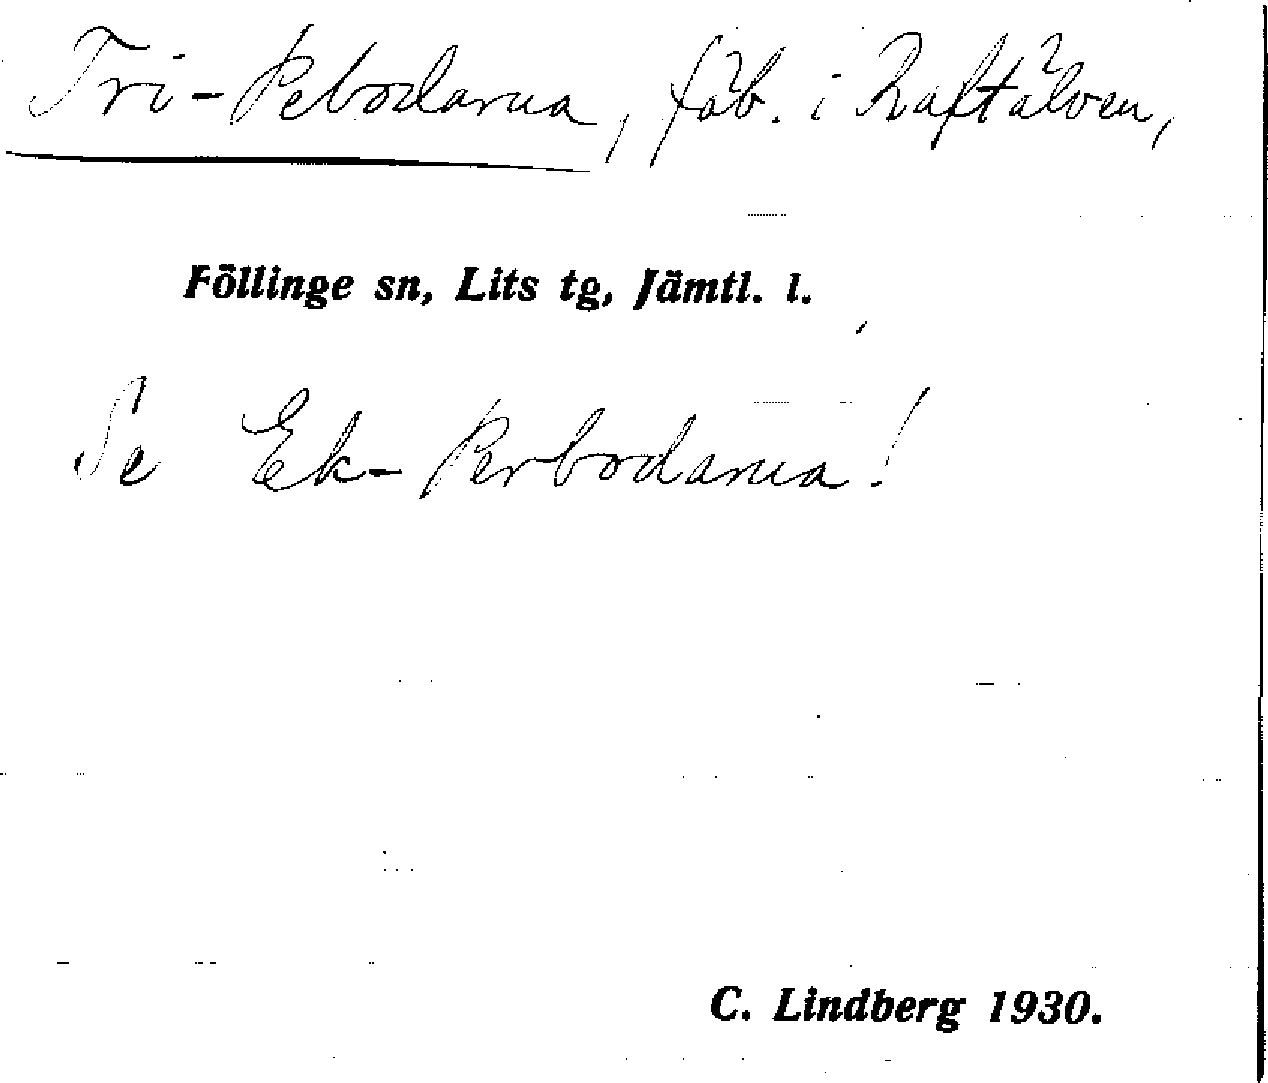 Tri-Pebodarna, fäb. i Raftälven,
Föllinge sn, Lits tg, Jämtl. l.
Se Ek-Perbodarna!
C. Lindberg 1930.